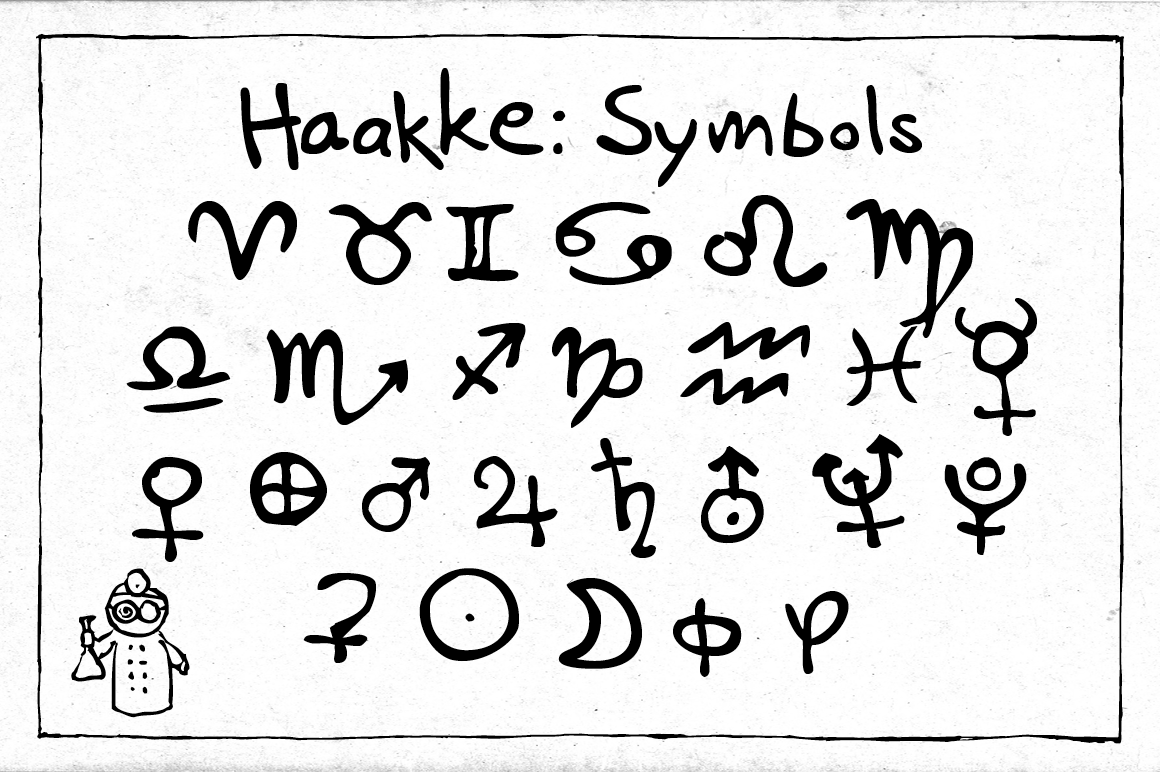 Haakke: Symbols
♈ ♉ ♊ ♋ ♌ ♍
♎ ♏ ♐ ♑ ♒ ♓ ☿
♀ 🜨 ♂ ♃ ♄ ⛢ ♆ ⯓
⚳ ☉ ☾ φ φ